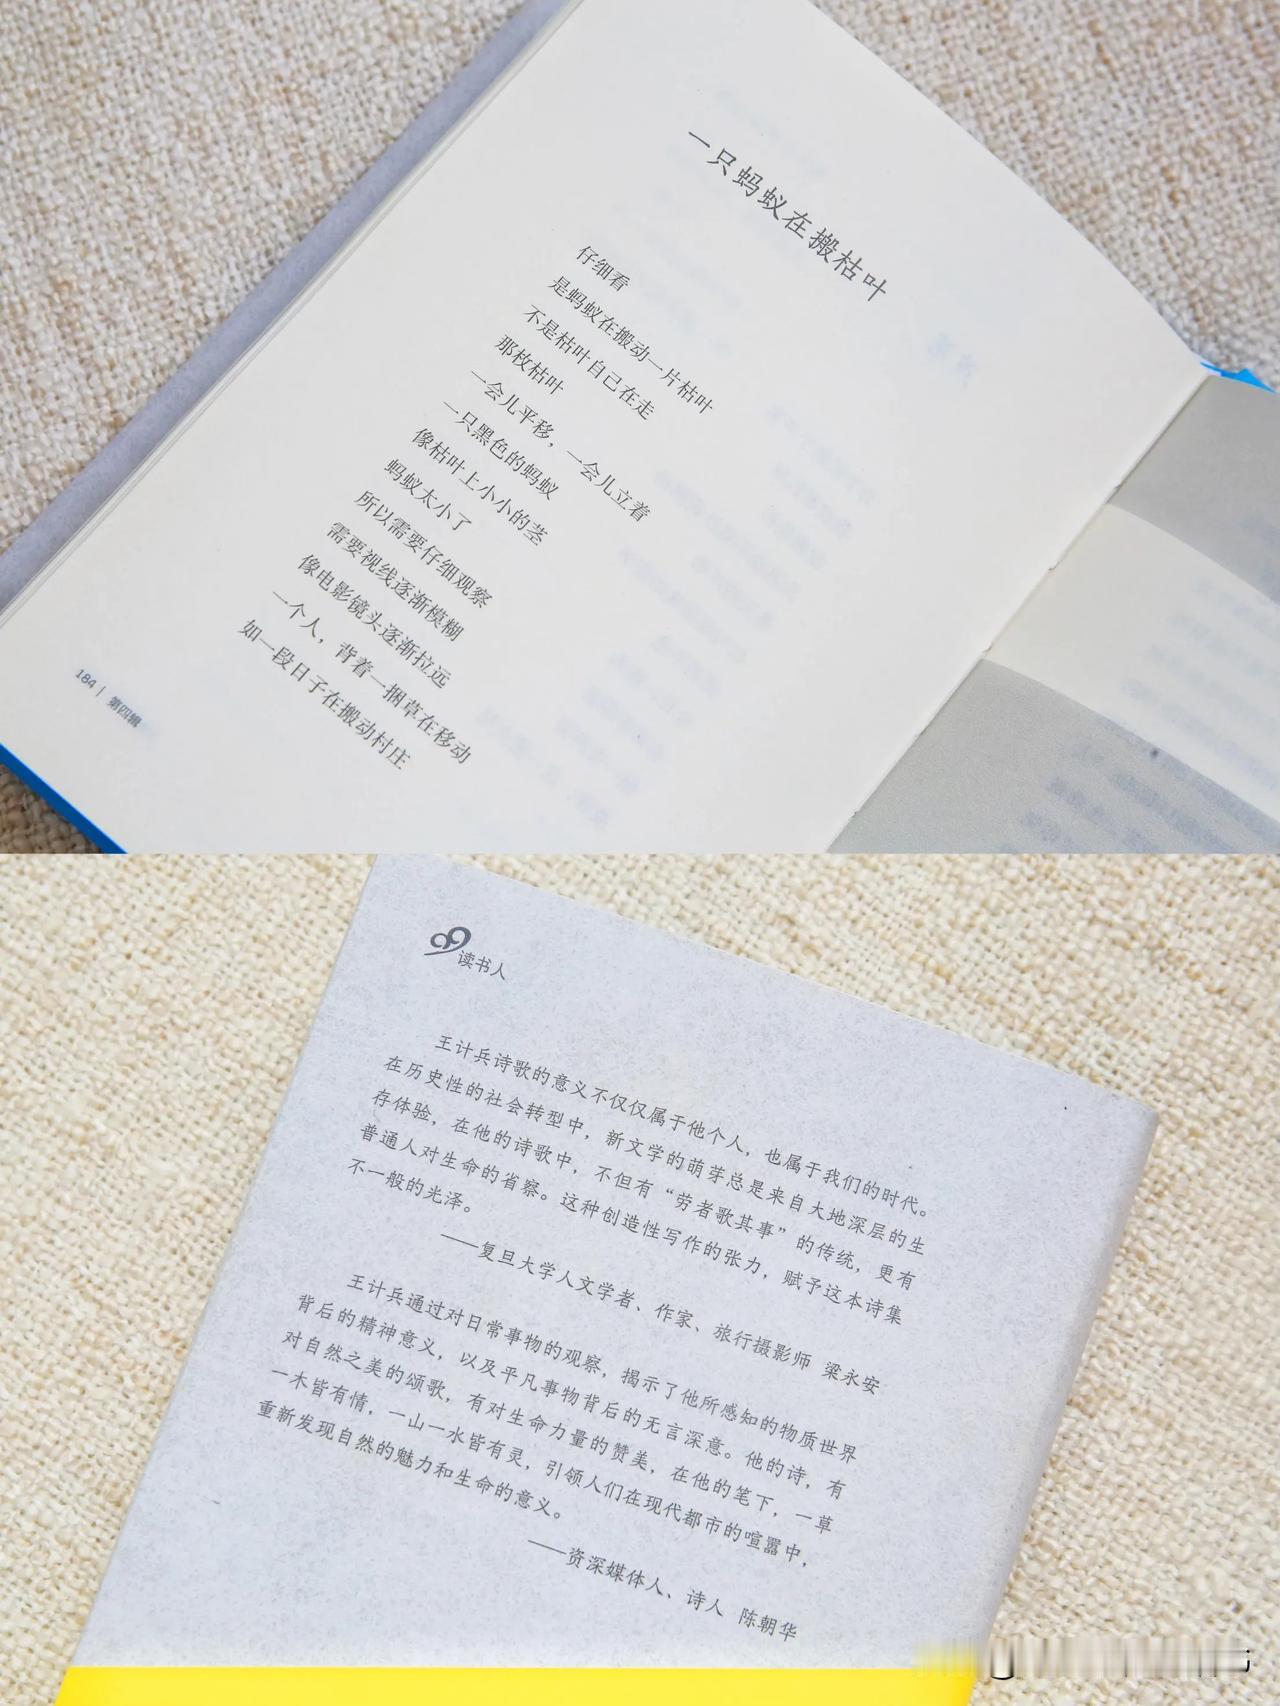 一只蚂蚁在搬枯叶
仔细看
是蚂蚁在搬动一片枯叶
不是枯叶自己在走
那枚枯叶
一会儿平移，一会儿立着
一只黑色的蚂蚁
像枯叶上小小的茎
蚂蚁太小了
所以需要仔细观察
需要视线逐渐模糊
像电影镜头逐渐拉远
一个人，背着一捆草在移动
如一段日子在搬动村庄
184 | 第四辑
读书人
王计兵诗歌的意义不仅仅属于他个人，也属于我们的时代。
在历史性的社会转型中，新文学的萌芽总是来自大地深层的生
存体验，在他的诗歌中，不但有“劳者歌其事”的传统，更有
普通人对生命的省察。这种创造性写作的张力，赋予这本诗集
不一般的光泽。
——复旦大学人文学者、作家、旅行摄影师 梁永安
王计兵通过对日常事物的观察，揭示了他所感知的物质世界
背后的精神意义，以及平凡事物背后的无言深意。他的诗，有
对自然之美的颂歌，有对生命力量的赞美，在他的笔下，一草
一木皆有情，一山一水皆有灵，引领人们在现代都市的喧嚣中，
重新发现自然的魅力和生命的意义。
——资深媒体人、诗人 陈朝华